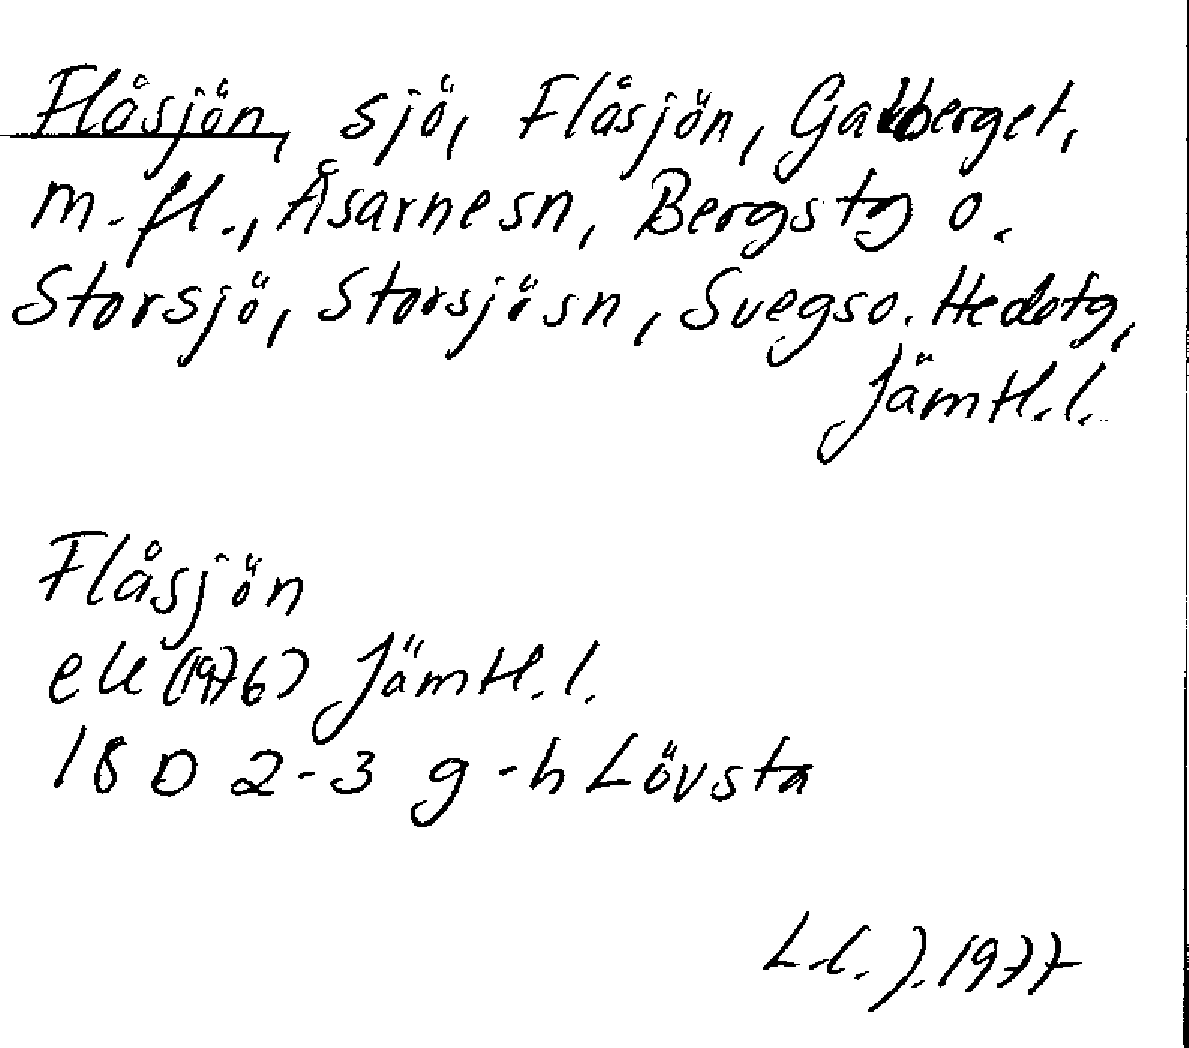 Flåsjön, sjö, Flåsjön, Galberget,
m.fl., Åsarne sn, Bergs tg o.
Storsjö, Storsjö sn, Svegs o. Hedetg,
Jämtl.l.
Flåsjön
ek (1976) Jämtl.l.
18 D 2-3 g-h Lövsta
L.l. J. 1977